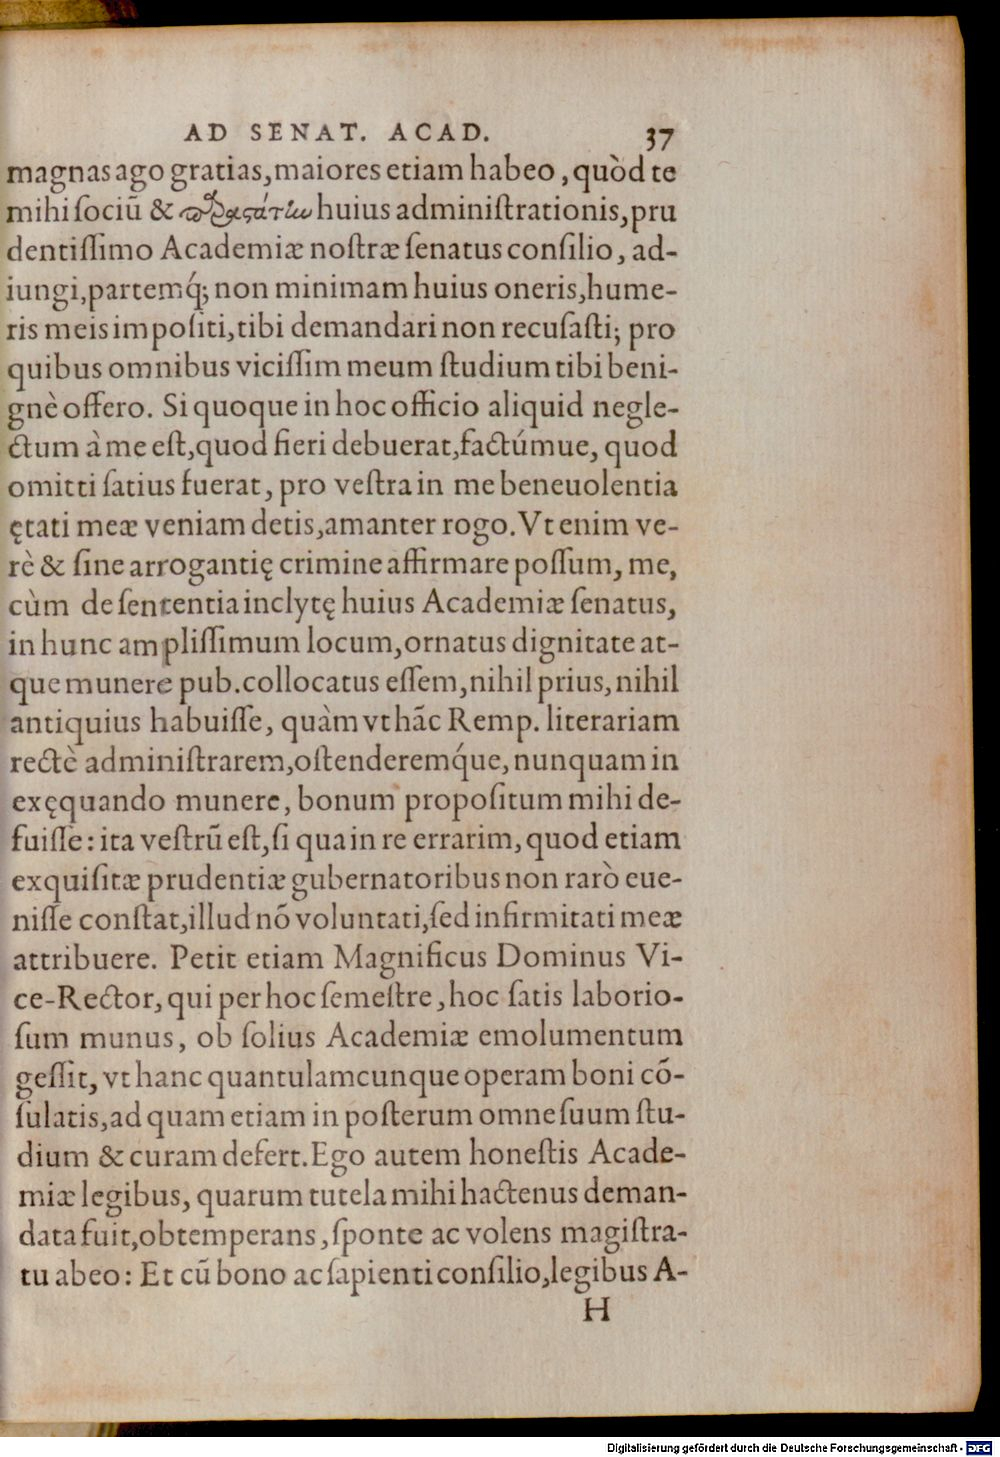 AD SENAT. ACAD. 37
magnas ago gratias, maiores etiam habeo, quòd te
mihi ſociũ & παραστάτην huius adminiſtrationis, pru
dentiſſimo Academiæ noſtræ ſenatus conſilio, ad-
iungi, partemq́; non minimam huius oneris, hume-
ris meis impoſiti, tibi demandari non recuſaſti; pro
quibus omnibus viciſſim meum ſtudium tibi beni-
gnè offero. Si quoque in hoc officio aliquid negle-
ctum à me eſt, quod fieri debuerat, factúmue, quod
omitti ſatius fuerat, pro veſtra in me beneuolentia
ętati meæ veniam detis, amanter rogo. Vt enim ve-
rè & ſine arrogantię crimine affirmare poſſum, me,
cùm de ſententia inclytę huius Academiæ ſenatus,
in hunc ampliſſimum locum, ornatus dignitate at-
que munere pub. collocatus eſſem, nihil prius, nihil
antiquius habuiſſe, quàm vt hãc Remp. literariam
rectè adminiſtrarem, oſtenderemq́ue, nunquam in
exęquando munere, bonum propoſitum mihi de-
fuiſſe: ita veſtrũ eſt, ſi qua in re errarim, quod etiam
exquiſitæ prudentiæ gubernatoribus non rarò eue-
niſſe conſtat, illud nõ voluntati, ſed infirmitati meæ
attribuere. Petit etiam Magnificus Dominus Vi-
ce-Rector, qui per hoc ſemeſtre, hoc ſatis laborio-
ſum munus, ob ſolius Academiæ emolumentum
geſſit, vt hanc quantulamcunque operam boni cõ-
ſulatis, ad quam etiam in poſterum omne ſuum ſtu-
dium & curam defert. Ego autem honeſtis Acade-
miæ legibus, quarum tutela mihi hactenus deman-
data fuit, obtemperans, ſponte ac volens magiſtra-
tu abeo: Et cũ bono ac ſapienti conſilio, legibus A-
H
Digitalisierung gefördert durch die Deutsche Forschungsgemeinschaft - DFG